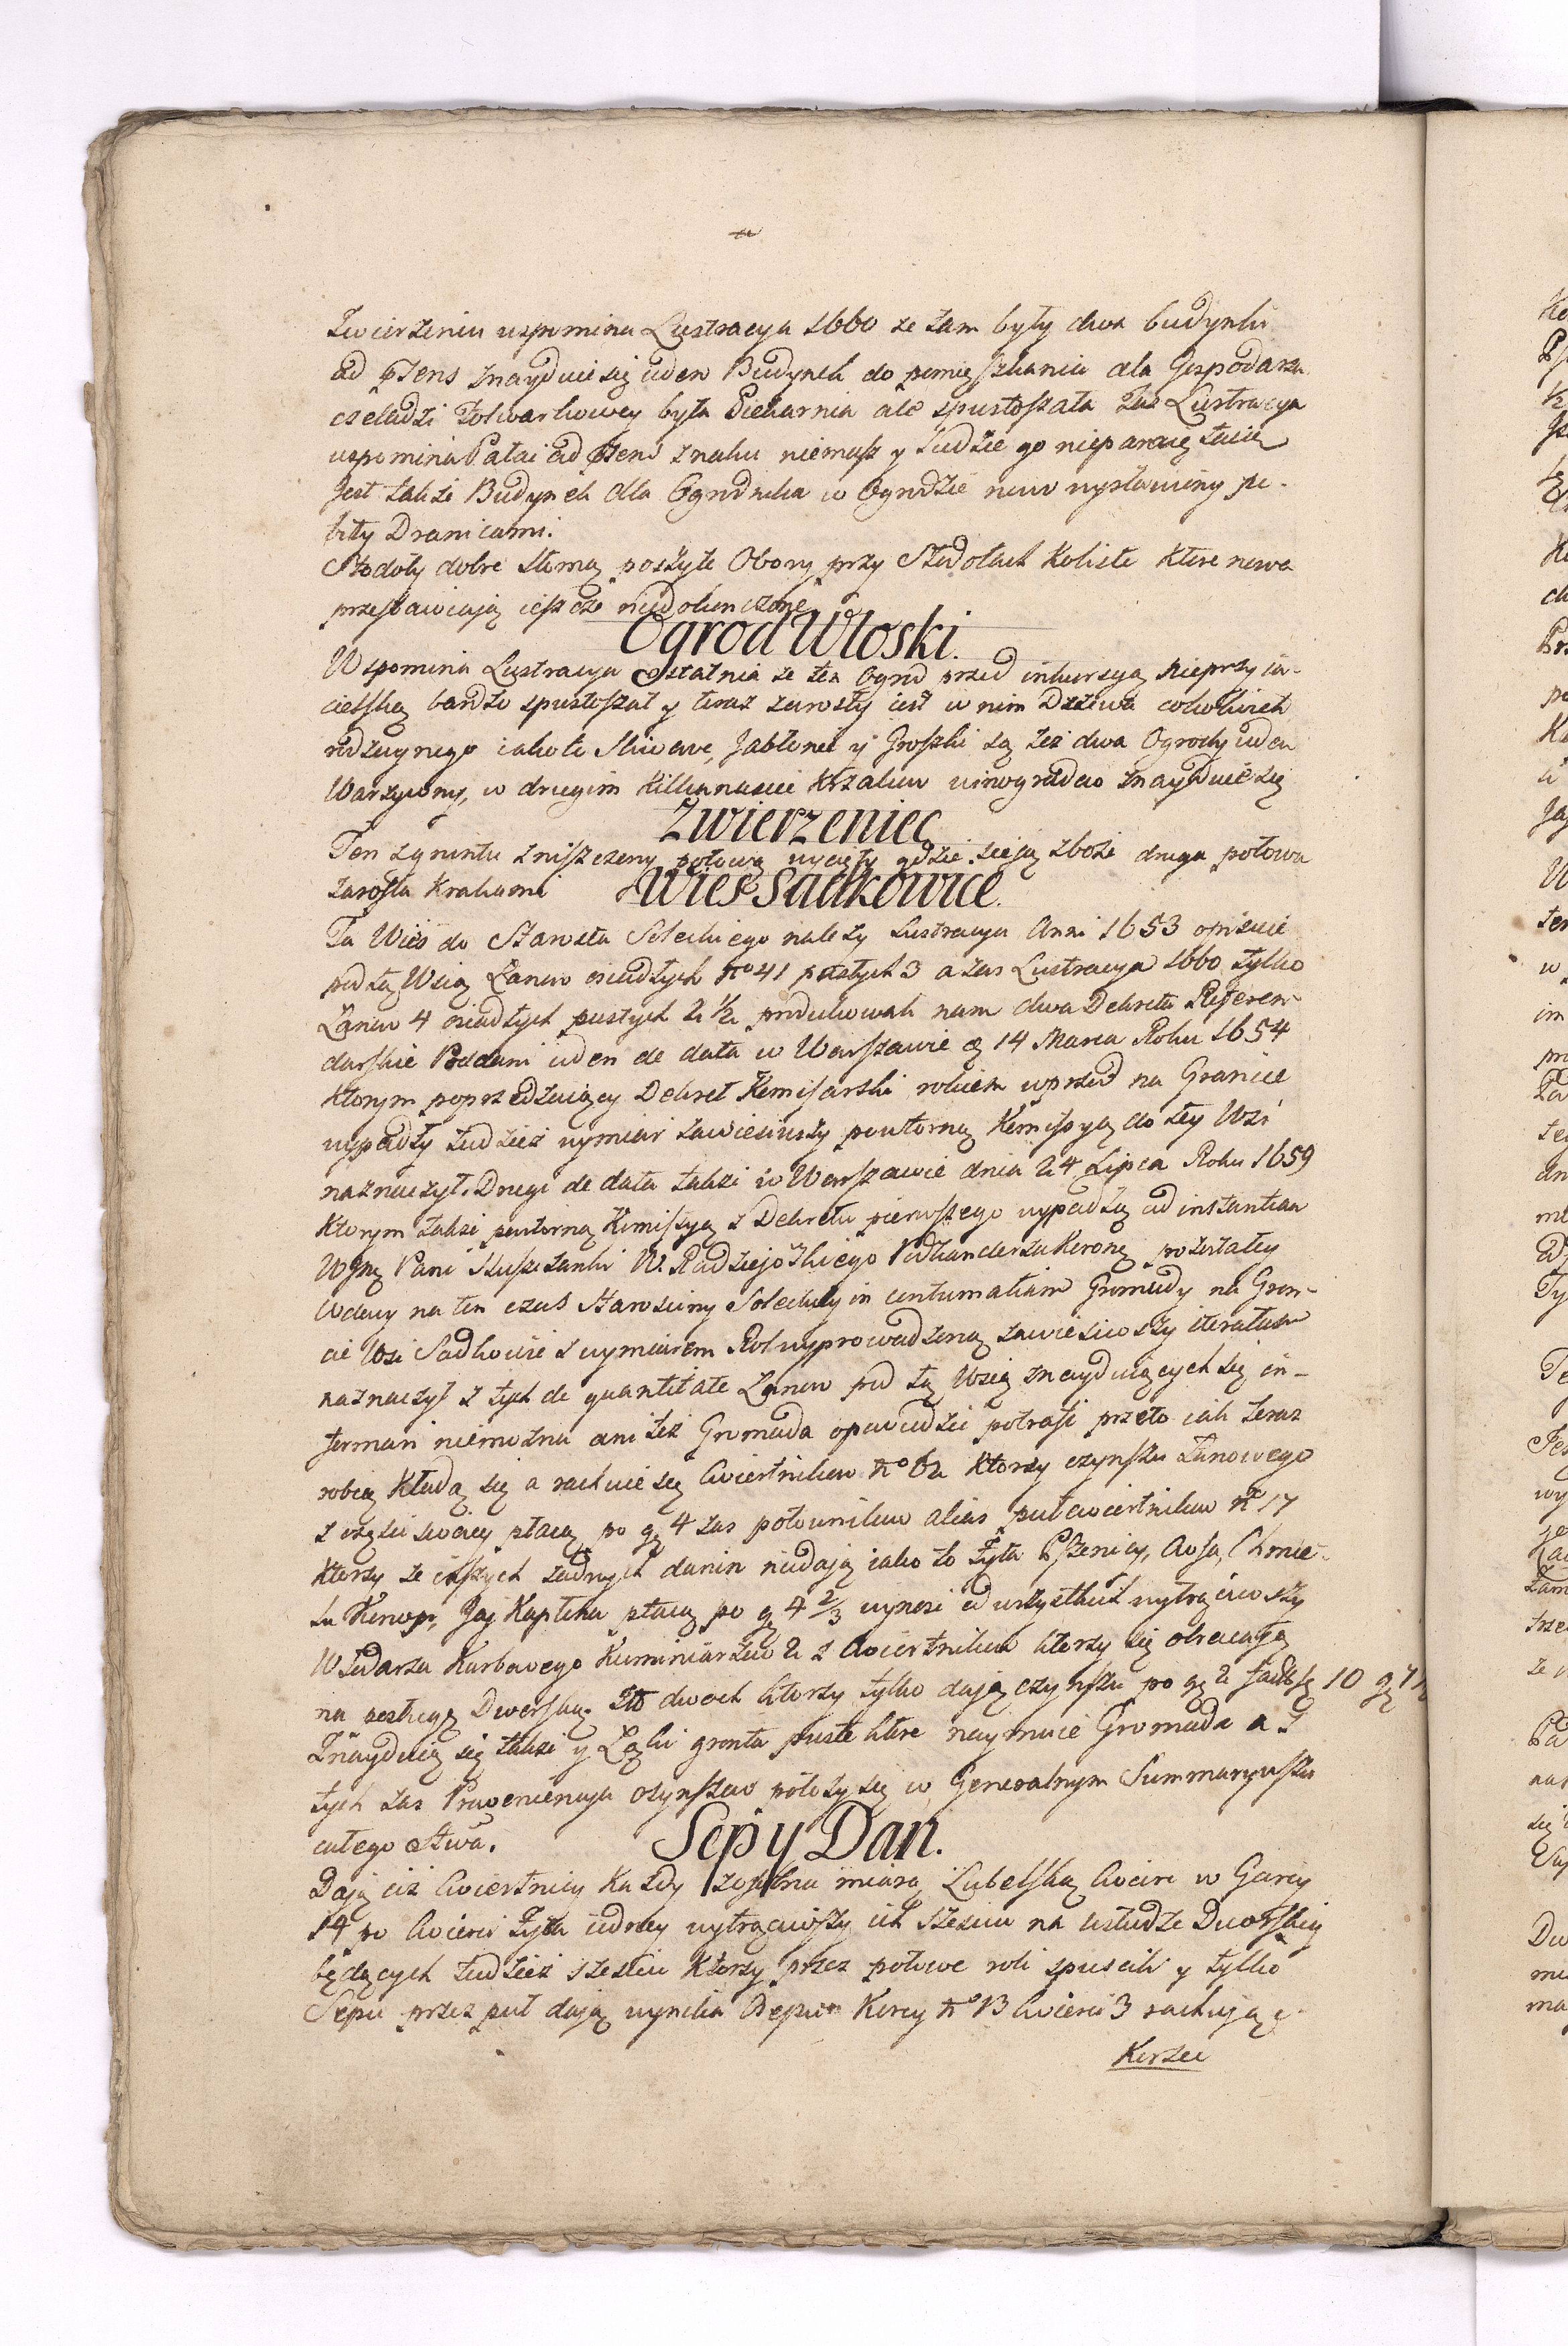 Zwierzeniu uspomina Lustracya 1660 ze tam były dwa budynki
ad pṡens znayduie się ieden Budynek do pomięszkania dla Gospodarza
czeladzi Folwarkowey była Piekarnia ale spustoszała zas Lustracya
uspomina Pałac ad pṡens znaku niemasz y Ludzie go niepamięṫaią
Jest także Budynek dla Ogrodnika w Ogrodzie nowo wystawiony po-
bity Dranicami.
Stodoły dobre słomą poszyte Obory przy Stodołach koliste ktore nowo
przestawiaią ieszcze niedokonczone
Ogrod Włoski.
Wspomina Lustracya Ostatnia ze ten Ogrod przed inkursyą nieprzyia-
cielską bardzo spustoszał y teraz zarosły iest w nim Drzewa cokolwiek
rodzaynego iakoto Sliwowe, Jabłonei y Groszki są tez dwa Ogrody ieden
Warzywny, w drugim kilkanascie krzakow winogradow znayduie się
Zwierzeniec
Ten z gruntu zniszczony połowa wycięty gdzie sieją zboże druga połowa
zarosła krakami
Wieś Sadkowice.
Ta Wieś do Starosta Soleckiego należy Lustracya Anni 1653 opisuie
pod tą Wsią Łanow osiadłych No 41 pustych 3 a zas Lustracya 1660 tylko
Łanow 4 osiadłych pustych 2 1/2 produkowali nam dwa Dekreta Referen-
darskie Poddani ieden de data w Warszawie 14 Marca Roku 1654
ktorym poprzedzaiący Dekret Komisarski rokiem wprzod na Granice
wypadły tudzież wymiar zawiesiwszy powtorną Komissyą do tey Wsi
naznaczył. Drugi de data także w Warszawie dnia 24 Lipca Roku 1659
ktorym także powtorną Komissyą z Dekretu pierwszego wypadłą ad instantiam
WJmę Pani Słuszczanki W. Radziejoskiego Podkanclerza Koronę pozostałey
Wdowy na ten czas Starosciny Soleckiey in contumatiam Gromady na Gron-
cie Wsi Sadkowic z wymiarem Rol wyprowadzoną zawiesiwszy iteratam
naznaczył z tych de quantitate Łanow pod tą Wsią znayduiących się in-
formari niemożna ani też Gromada opowiedzieć potrafi przeto iak teraz
robią kładą się a rachuie się Cwiertnikow No 62 ktorzy czynszu Łanowego
z częsci swoiey płacą po gę 4 zas połownikow alias pułcwiertnikow No 17
ktorzy ze inszych żadnych danin niedaią iako to Żyta Pszenicy, Owsa, Chmie-
lu Konop, Jay Kapłona płacą po gę 4 2/3 wynosi od wszystkich wytrąciwszy
Włodarza Karbowego Kominiarzow 2 z Cwiertnikow ktorzy się obracaią
na posługę Dworską. Ito dwoch ktorzy tylko daią czynszu po gę 2 10
Znayduią się także y Łąki gronta puste ktore naymuie Gromada a Z
tych zas Prowenicnya czynszow położy się w Generalnym Summaryuszu
całego Stwa.
Sepy Dan.
Daią ciż Cwiertnicy każdy zosobna miarą Lubelską Cwierc w Garcy
14 po Cwierci Żyta iedney wytrąciwszy ich szesciu na usłudze Dworskiey
będących tudzież szesciu ktorzy przez połowe roli spuscili y tylko
Sepu przez puł daią wynika Osepu Korcy No 13 Cwierci 3 rachuiąc
Korzec